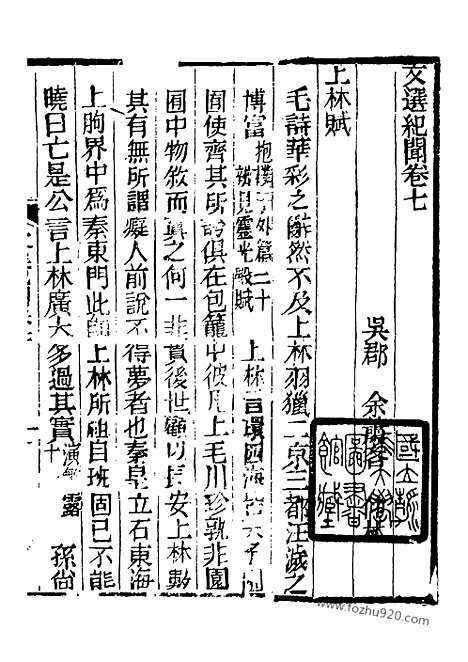 文選紀聞卷七
吳郡 余蕭客
上林賦
毛詩華彩之辭然不及上林羽獵二京三都汪濊之
博富抱樸子外篇三十辨見靈光殿賦 上林言環四海皆天子園
囿使齊其所誇俱在包籠中彼上毛川珍孰非園
囿中物敘而置之何一非實後世顧以長安上林覈
其有無所謂癡人前說不得夢者也秦皇立石東海
上朐界中爲秦東門此謂上林所祖自班固已不能
曉曰亡是公言上林廣大多過其實演繁露十 孫尚
圖書
館藏
www.fozhu920.com